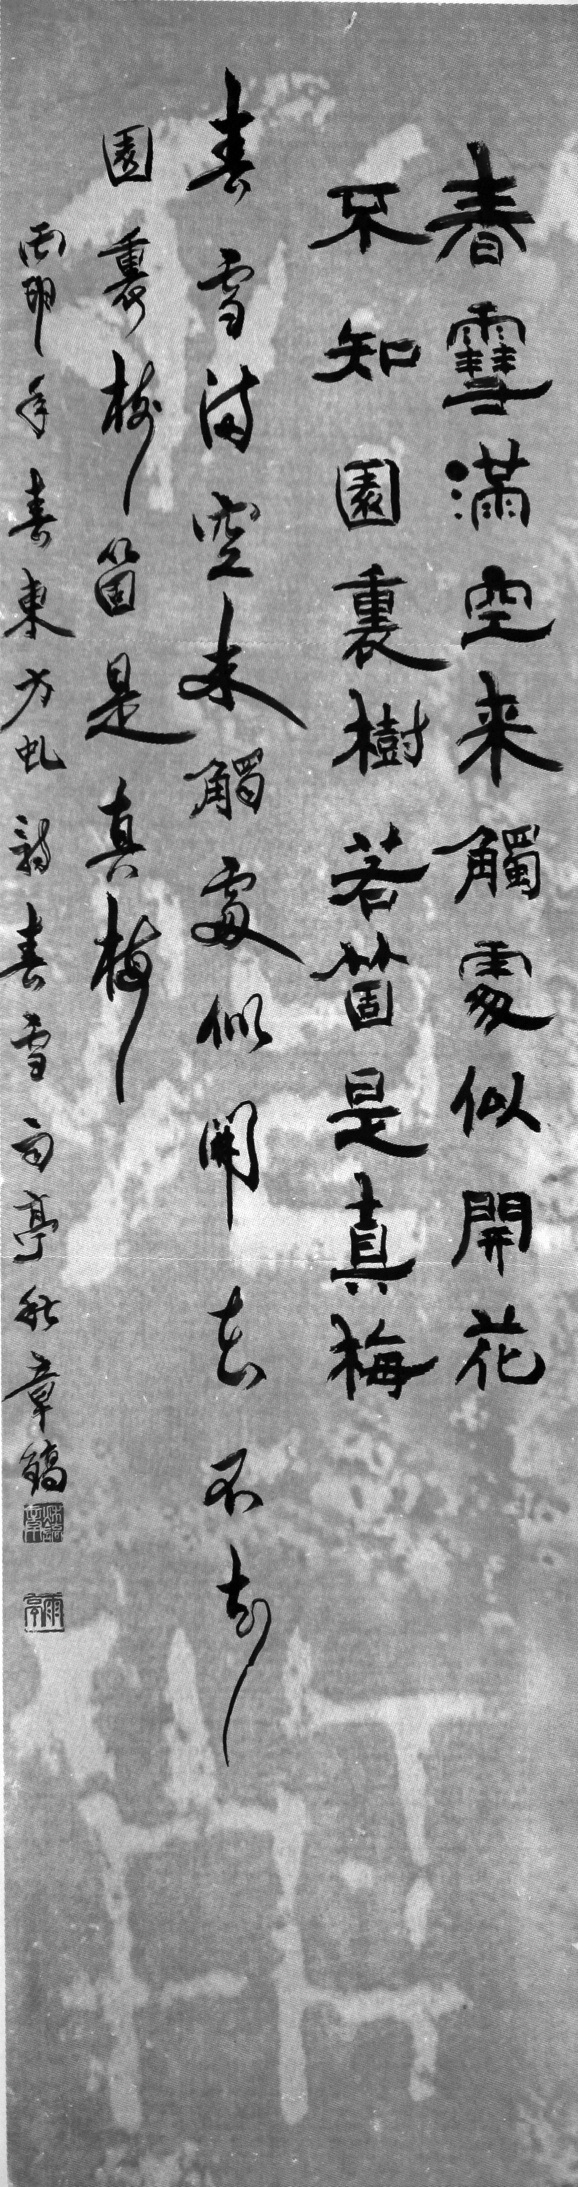 春雪滿空来觸處似開花
不知園裏樹若箇是真梅
春雪満空来觸處似開花不知
園裏樹箇是真梅
年春東方虬詩春雪雨亭章鎬
雨亭